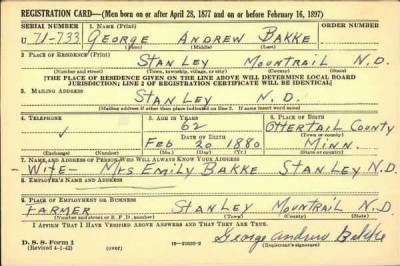 REGISTRATION CARD—(Men born on or after April 28, 1877 and on or before February 16, 1897)
SERIAL NUMBER 1. NAME (Print) ORDER NUMBER
U U-733 GEORGE ANDREW BAKKE
(First) (Middle) (Last)
2. PLACE OF RESIDENCE (Print)
STANLEY MOUNTRAIL N.D.
(Number and street) (Town, township, village, or city) (County) (State)
[THE PLACE OF RESIDENCE GIVEN ON THE LINE ABOVE WILL DETERMINE LOCAL BOARD
JURISDICTION; LINE 2 OF REGISTRATION CERTIFICATE WILL BE IDENTICAL]
3. MAILING ADDRESS
STANLEY N.D.
[Mailing address if other than place indicated on line 2. If same insert word same]
4. TELEPHONE 5. AGE IN YEARS 6. PLACE OF BIRTH
62 OTTERTAIL COUNTY
DATE OF BIRTH (Town or county)
FEB 20 1880 MINN.
(Exchange) (Number) (Mo.) (Day) (Yr.) (State or country)
7. NAME AND ADDRESS OF PERSON WHO WILL ALWAYS KNOW YOUR ADDRESS
WIFE - MRS EMILY BAKKE STANLEY N.D.
8. EMPLOYER'S NAME AND ADDRESS
9. PLACE OF EMPLOYMENT OR BUSINESS
FARMER STANLEY MOUNTRAIL N.D.
(Number and street or R. F. D. number) (Town) (County) (State)
I AFFIRM THAT I HAVE VERIFIED ABOVE ANSWERS AND THAT THEY ARE TRUE.
D. S. S. Form 1 George Andrew Bakke
(Revised 4-1-42) (over) (Registrant's signature)